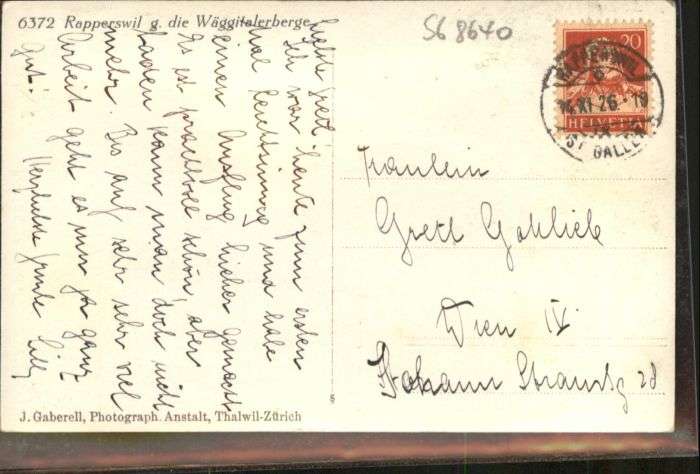 6372 Rapperswil g. die Wäggitalerberge
S6 8640
20
RAPPERSWIL
14.XI.26.-19
HELVETIA
ST. GALLEN
Liebste Gretl!
Ich war heute zum ersten
mal leichtsinnig und habe
einen Ausflug hieher gemacht
Es ist prachtvoll schön, aber
baden kann man doch nicht
mehr. Bis auf sehr sehr viel
Arbeit geht es mir ja ganz
gut.
Herzlichste Grüsse Lilly
Fräulein
Gretl Gottlieb
Wien IV.
Johann Straussg 28
J. Gaberell, Photograph. Anstalt, Thalwil-Zürich